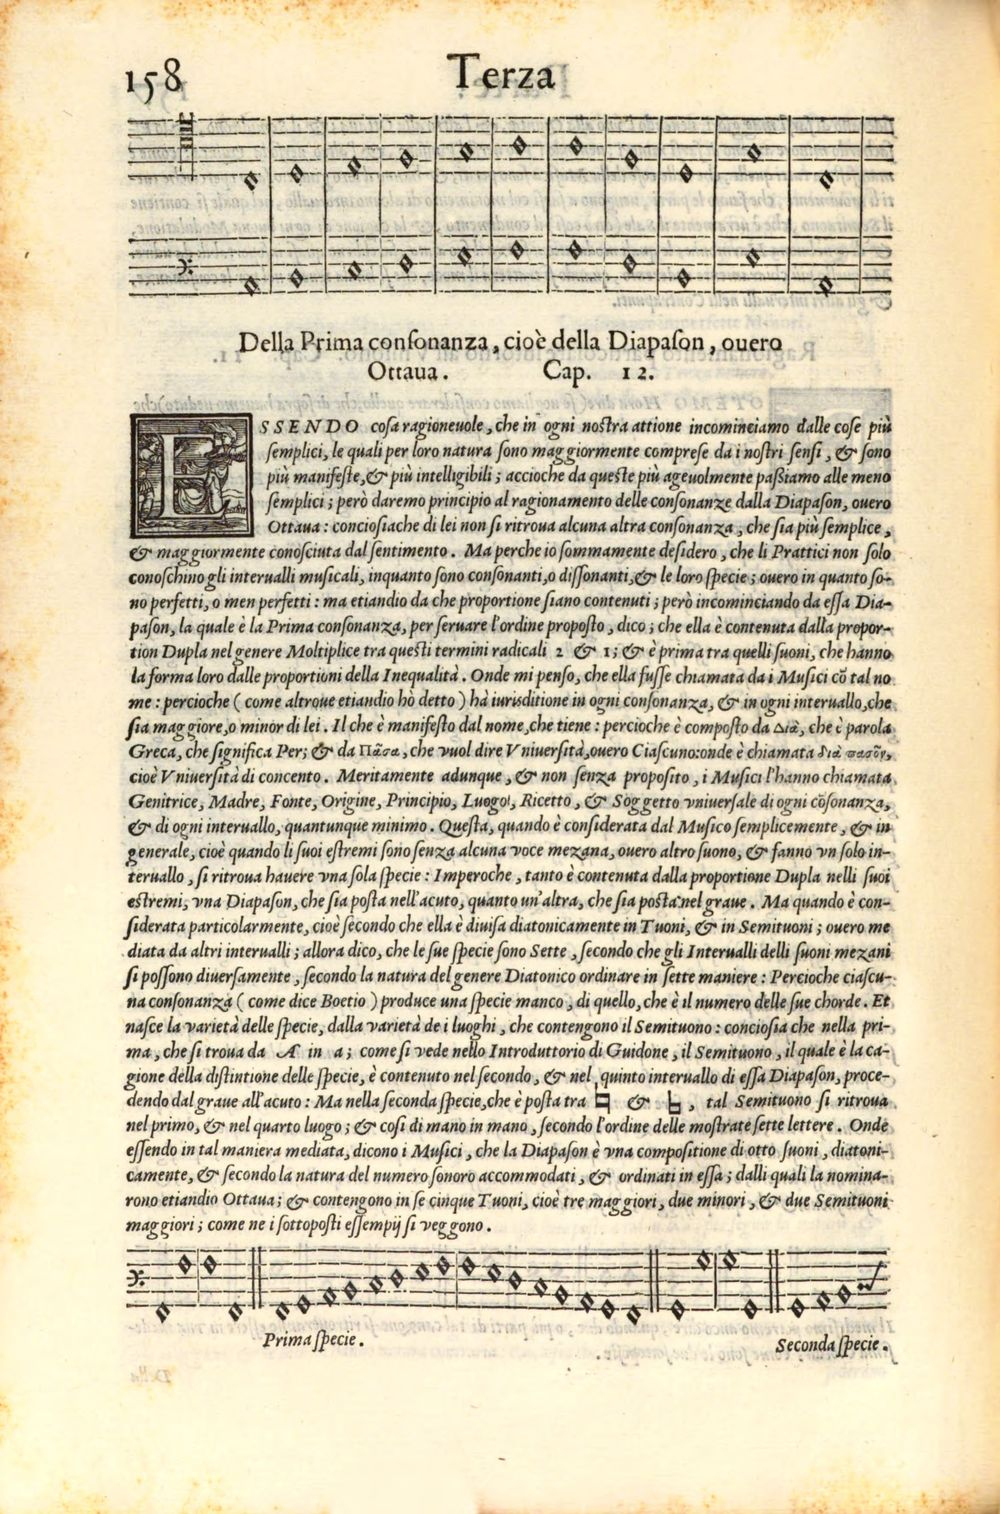 158
Terza
Della Prima conſonanza, cioè della Diapaſon, ouero
Ottaua. Cap. 12.
ESSENDO coſa ragioneuole, che in ogni noſtra attione incominciamo dalle coſe più
ſemplici, le quali per loro natura ſono maggiormente compreſe da i noſtri ſenſi, & ſono
più manifeſte, & più intelligibili; accioche da queſte più ageuolmente paßiamo alle meno
ſemplici; però daremo principio al ragionamento delle conſonanze dalla Diapaſon, ouero
Ottaua: concioſiache di lei non ſi ritroua alcuna altra conſonanza, che ſia più ſemplice,
& maggiormente conoſciuta dal ſentimento. Ma perche io ſommamente deſidero, che li Prattici non ſolo
conoſchino gli interualli muſicali, inquanto ſono conſonanti, o diſſonanti, & le loro ſpecie; ouero in quanto ſo-
no perfetti, o men perfetti: ma etiandio da che proportione ſiano contenuti; però incominciando da eſſa Dia-
paſon, la quale è la Prima conſonanza, per ſeruare l'ordine propoſto, dico; che ella è contenuta dalla propor-
tion Dupla nel genere Moltiplice tra queſti termini radicali 2 & 1; & è prima tra quelli ſuoni, che hanno
la forma loro dalle proportioni della Inequalità. Onde mi penſo, che ella fuſſe chiamata da i Muſici cō tal no
me: percioche ( come altroue etiandio hò detto ) hà iuriſditione in ogni conſonanza, & in ogni interuallo, che
ſia maggiore, o minor di lei. Il che è manifeſto dal nome, che tiene: percioche è compoſto da Διὰ, che è parola
Greca, che ſignifica Per; & da Πᾶσα, che vuol dire Vniuerſità, ouero Ciaſcuno: onde è chiamata διὰ πασῶν,
cioè Vniuerſità di concento. Meritamente adunque, & non ſenza propoſito, i Muſici l'hanno chiamata
Genitrice, Madre, Fonte, Origine, Principio, Luogo, Ricetto, & Soggetto vniuerſale di ogni cōſonanza,
& di ogni interuallo, quantunque minimo. Queſta, quando è conſiderata dal Muſico ſemplicemente, & in
generale, cioè quando li ſuoi eſtremi ſono ſenza alcuna voce mezana, ouero altro ſuono, & fanno vn ſolo in-
teruallo, ſi ritroua hauere vna ſola ſpecie: Imperoche, tanto è contenuta dalla proportione Dupla nelli ſuoi
eſtremi, vna Diapaſon, che ſia poſta nell'acuto, quanto un'altra, che ſia poſta nel graue. Ma quando è con-
ſiderata particolarmente, cioè ſecondo che ella è diuiſa diatonicamente in Tuoni, & in Semituoni; ouero me
diata da altri interualli; allora dico, che le ſue ſpecie ſono Sette, ſecondo che gli Interualli delli ſuoni mezani
ſi poſſono diuerſamente, ſecondo la natura del genere Diatonico ordinare in ſette maniere: Percioche ciaſcu-
na conſonanza ( come dice Boetio ) produce una ſpecie manco, di quello, che è il numero delle ſue chorde. Et
naſce la varietà delle ſpecie, dalla varietà de i luoghi, che contengono il Semituono: concioſia che nella pri-
ma, che ſi troua da A in a; come ſi vede nello Introduttorio di Guidone, il Semituono, il quale è la ca-
gione della diſtintione delle ſpecie, è contenuto nel ſecondo, & nel quinto interuallo di eſſa Diapaſon, proce-
dendo dal graue all'acuto: Ma nella ſeconda ſpecie, che è poſta tra & , tal Semituono ſi ritroua
nel primo, & nel quarto luogo; & coſi di mano in mano, ſecondo l'ordine delle moſtrate ſette lettere. Onde
eſſendo in tal maniera mediata, dicono i Muſici, che la Diapaſon è vna compoſitione di otto ſuoni, diatoni-
camente, & ſecondo la natura del numero ſonoro accommodati, & ordinati in eſſa; dalli quali la nomina-
rono etiandio Ottaua; & contengono in ſe cinque Tuoni, cioè tre maggiori, due minori, & due Semituoni
maggiori; come ne i ſottopoſti eſſempij ſi veggono.
Prima ſpecie.
Seconda ſpecie.